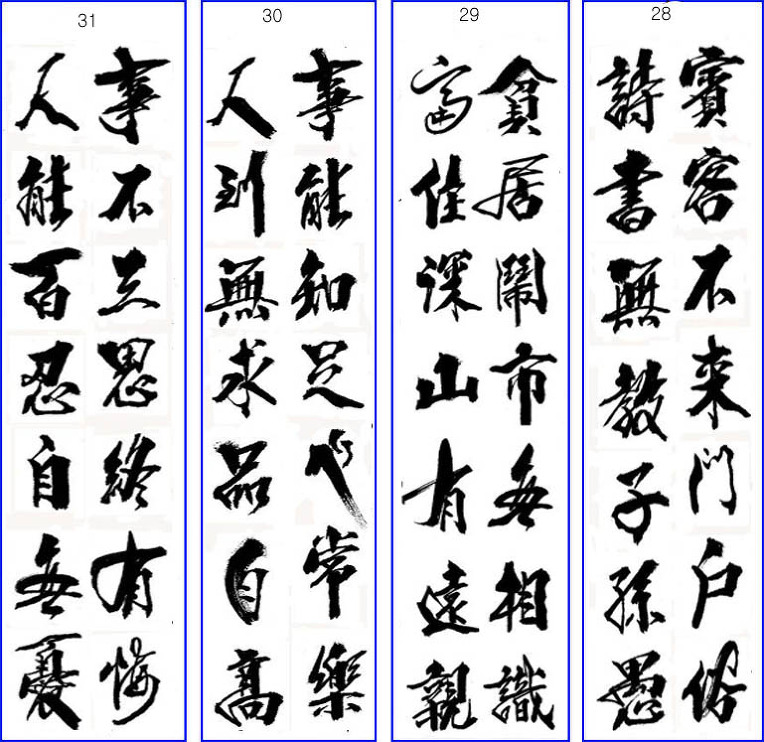 28
賓客不来門户俗
詩書無教子孫愚
29
貧居鬧市無相識
富住深山有遠親
30
事能知足心常樂
人到無求品自高
31
事不三思終有悔
人能百忍自無憂